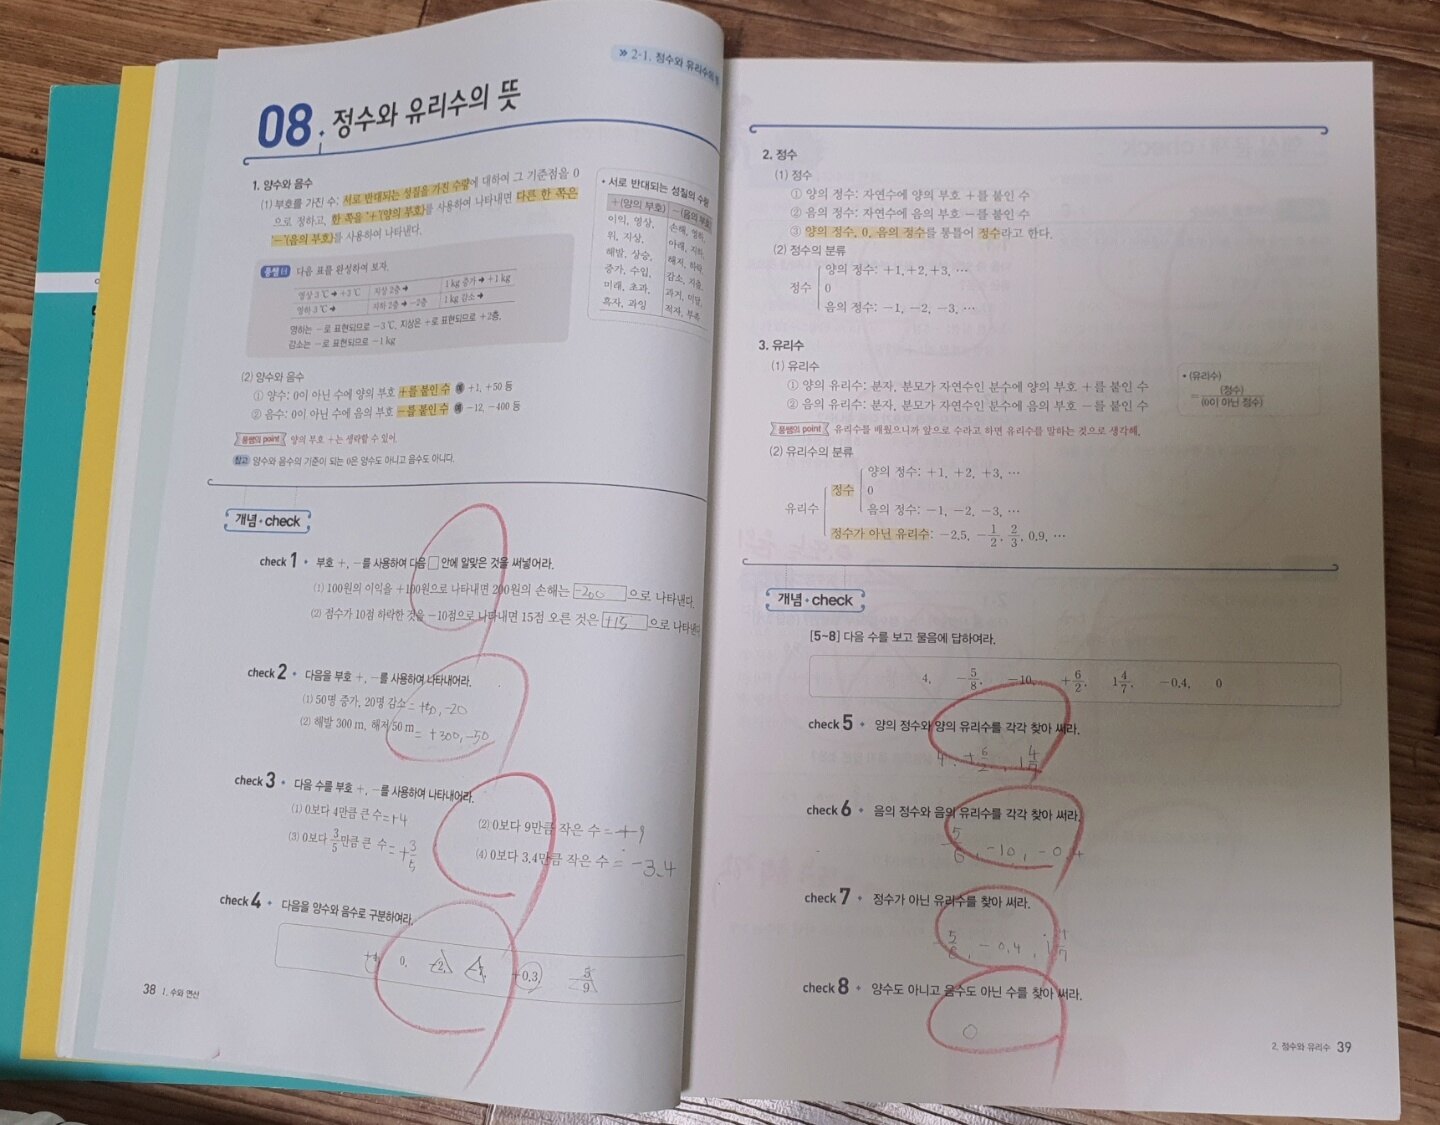 » 2-1. 정수와 유리수의 뜻
08 정수와 유리수의 뜻
1. 양수와 음수
(1) 부호를 가진 수: 서로 반대되는 성질을 가진 수량에 대하여 그 기준점을 0
으로 정하고, 한 쪽을 '+'(양의 부호)를 사용하여 나타내면 다른 한 쪽은
'-'(음의 부호)를 사용하여 나타낸다.
풍쌤 다음 표를 완성하여 보자.
영상 3 ℃ → +3 ℃ 지상 2층 → 1 kg 증가 → +1 kg
영하 3 ℃ → 지하 2층 → -2층 1 kg 감소 →
영하는 -로 표현되므로 -3 ℃, 지상은 +로 표현되므로 +2층,
감소는 -로 표현되므로 -1 kg
• 서로 반대되는 성질의 수량
+(양의 부호) -(음의 부호)
이익, 영상, 손해, 영하,
위, 지상, 아래, 지하,
해발, 상승, 해저, 하락,
증가, 수입, 감소, 지출,
미래, 초과, 과거, 미달,
흑자, 과잉 적자, 부족
(2) 양수와 음수
① 양수: 0이 아닌 수에 양의 부호 +를 붙인 수 예 +1, +50 등
② 음수: 0이 아닌 수에 음의 부호 -를 붙인 수 예 -12, -400 등
풍쌤의 point 양의 부호 +는 생략할 수 있어.
참고 양수와 음수의 기준이 되는 0은 양수도 아니고 음수도 아니다.
개념·check
check 1 • 부호 +, -를 사용하여 다음 □ 안에 알맞은 것을 써넣어라.
(1) 100원의 이익을 +100원으로 나타내면 200원의 손해는 -200 으로 나타낸다.
(2) 점수가 10점 하락한 것을 -10점으로 나타내면 15점 오른 것은 +15 으로 나타낸
check 2 • 다음을 부호 +, -를 사용하여 나타내어라.
(1) 50명 증가, 20명 감소 = , -20
(2) 해발 300 m, 해저 50 m = +300, -50
check 3 • 다음 수를 부호 +, -를 사용하여 나타내어라.
(1) 0보다 4만큼 큰 수 = +4
(2) 0보다 9만큼 작은 수 = 9
(3) 0보다 3/5만큼 큰 수 = +3/5
(4) 0보다 3.4만큼 작은 수 = -3.4
check 4 • 다음을 양수와 음수로 구분하여라.
0, -2, +0.3,
38 1. 수와 연산
2. 정수
(1) 정수
① 양의 정수: 자연수에 양의 부호 +를 붙인 수
② 음의 정수: 자연수에 음의 부호 -를 붙인 수
③ 양의 정수, 0, 음의 정수를 통틀어 정수라고 한다.
(2) 정수의 분류
양의 정수: +1, +2, +3, …
정수 0
음의 정수: -1, -2, -3, …
3. 유리수
(1) 유리수
① 양의 유리수: 분자, 분모가 자연수인 분수에 양의 부호 +를 붙인 수
② 음의 유리수: 분자, 분모가 자연수인 분수에 음의 부호 -를 붙인 수
• (유리수)
= (정수)/(0이 아닌 정수)
풍쌤의 point 유리수를 배웠으니까 앞으로 수라고 하면 유리수를 말하는 것으로 생각해.
(2) 유리수의 분류
양의 정수: +1, +2, +3, …
정수 0
유리수 음의 정수: -1, -2, -3, …
정수가 아닌 유리수: -2.5, -1/2, 2/3, 0.9, …
개념·check
[5~8] 다음 수를 보고 물음에 답하여라.
4, -5/8, -10, +6/2, 1 4/7, -0.4, 0
check 5 • 양의 정수와 양의 유리수를 각각 찾아 써라.
4, +6/2, 1 4/7
check 6 • 음의 정수와 음의 유리수를 각각 찾아 써라.
-10,
check 7 • 정수가 아닌 유리수를 찾아 써라.
-0.4,
check 8 • 양수도 아니고 음수도 아닌 수를 찾아 써라.
0
2. 정수와 유리수 39